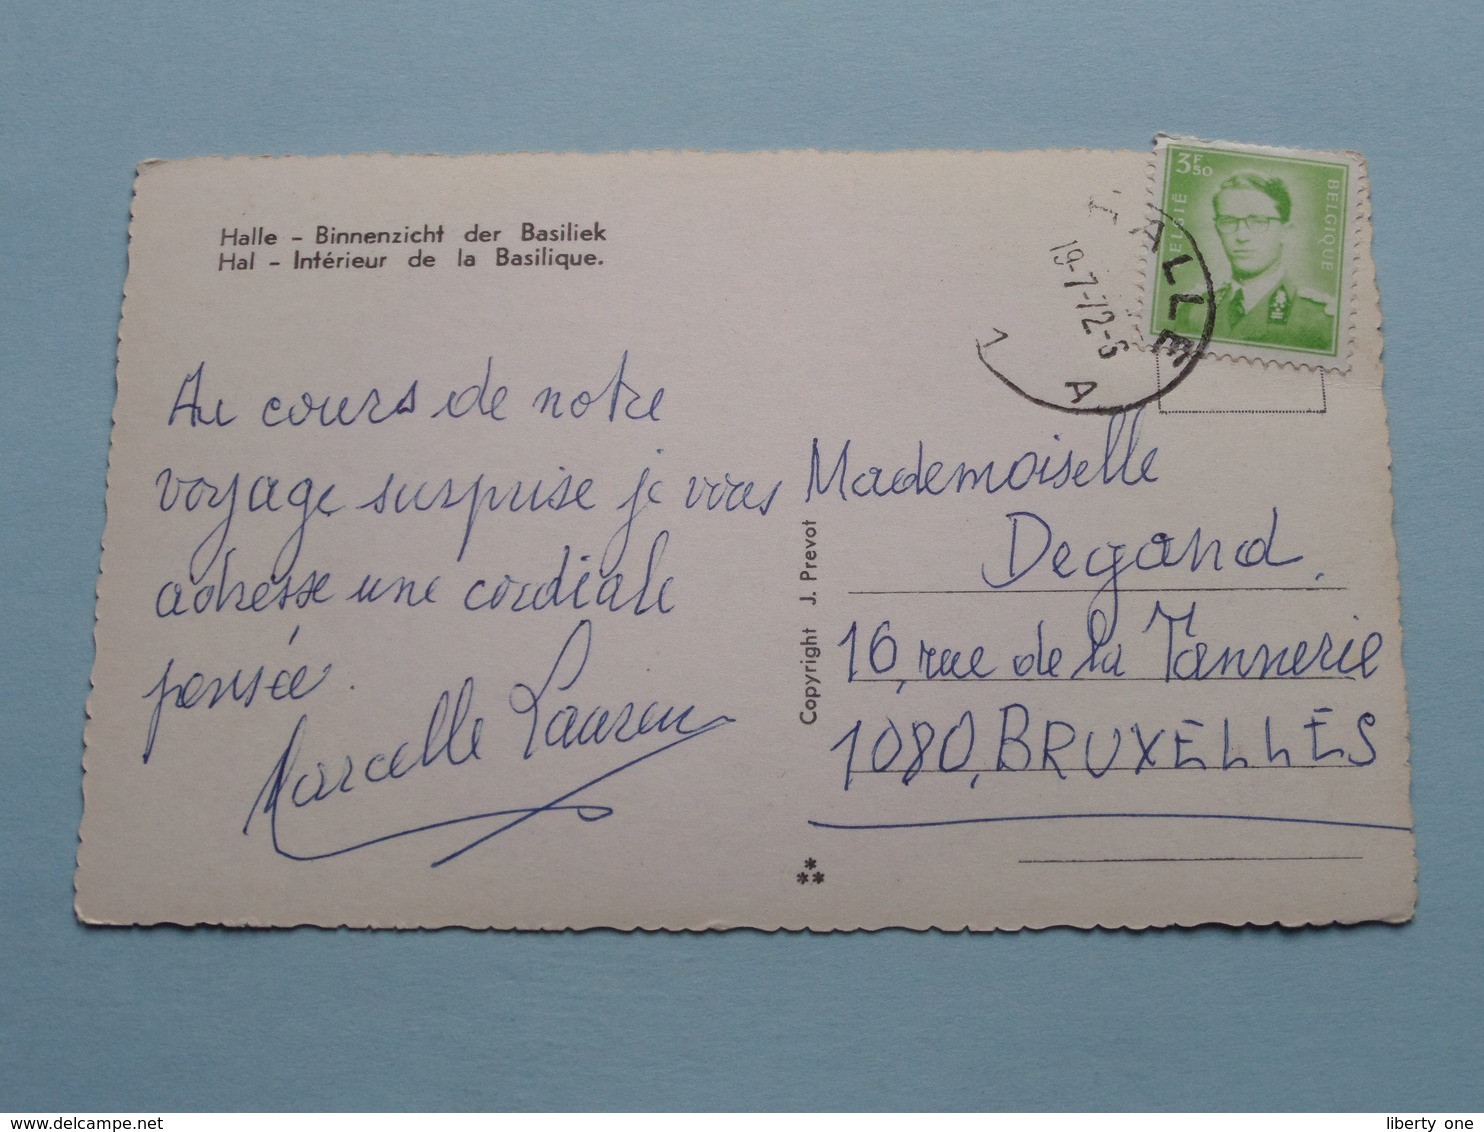 Halle - Binnenzicht der Basiliek
Hal - Intérieur de la Basilique.
Au cours de notre
voyage surprise je vous
adresse une cordiale
pensée.
Marcelle
Copyright J. Prevot
3F50
BELGIË
BELGIQUE
HALLE
19-7-72
1 A
Mademoiselle
Degand.
16, rue de la Tannerie
1080, BRUXELLES
delcampe.net
liberty one